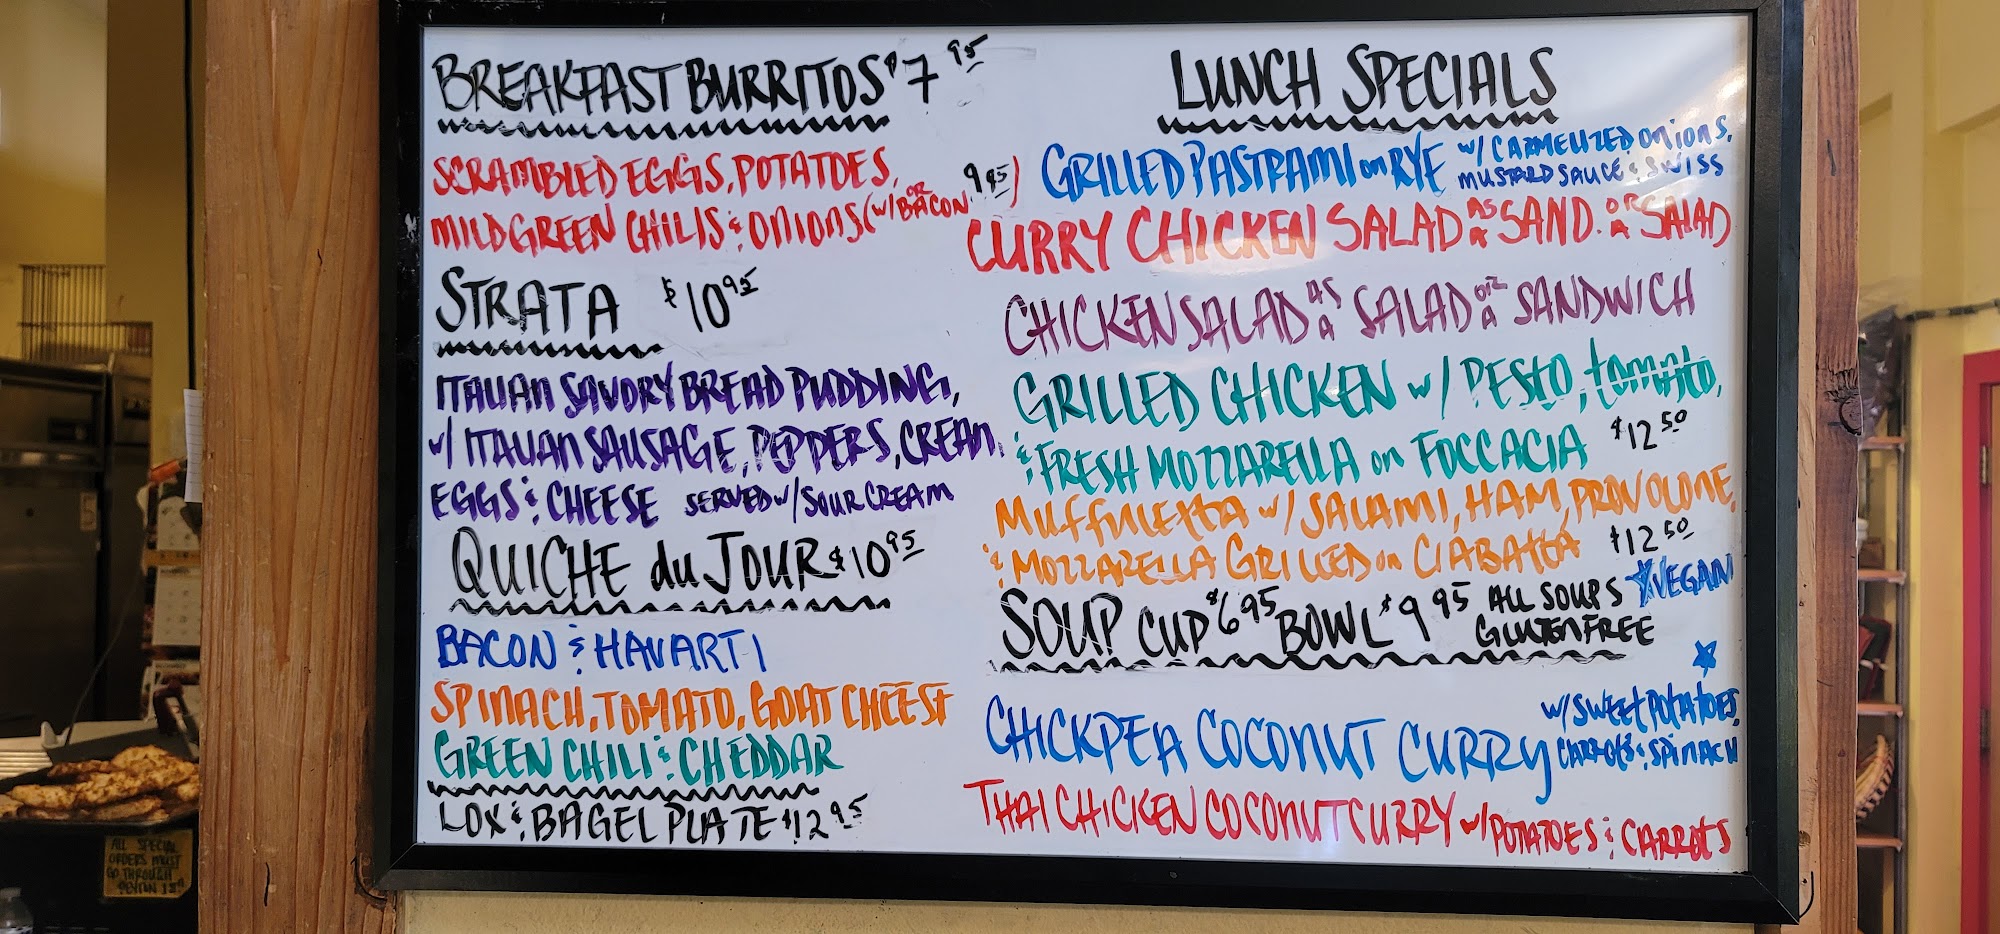 BREAKFAST BURRITOS $7 95
SCRAMBLED EGGS, POTATOES,
MILD GREEN CHILIS & ONIONS (w/ BACON OR 9 95)
STRATA $10 95
ITALIAN SAVORY BREAD PUDDING,
w/ ITALIAN SAUSAGE, PEPPERS, CREAM,
EGGS & CHEESE SERVED w/ SOUR CREAM
QUICHE du JOUR $10 95
BACON & HAVARTI
SPINACH, TOMATO, GOAT CHEESE
GREEN CHILI & CHEDDAR
LOX & BAGEL PLATE $12 95
LUNCH SPECIALS
GRILLED PASTRAMI on RYE w/ CARMELIZED ONIONS,
MUSTARD SAUCE & SWISS
CURRY CHICKEN SALAD AS A SAND. OR A SALAD
CHICKEN SALAD AS A SALAD OR A SANDWICH
GRILLED CHICKEN w/ PESTO, tomato,
& FRESH MOZZARELLA on FOCCACIA $12 50
MUFFULETTA w/ SALAMI, HAM, PROVOLONE,
& MOZZARELLA GRILLED on CIABATTA $12 50
SOUP CUP $6 95 BOWL $9 95 ALL SOUPS GLUTEN FREE
VEGAN
CHICKPEA COCONUT CURRY w/ SWEET POTATOES,
CARROTS & SPINACH
THAI CHICKEN COCONUT CURRY w/ POTATOES & CARROTS
ALL SPECIAL
ORDERS MUST
GO THROUGH